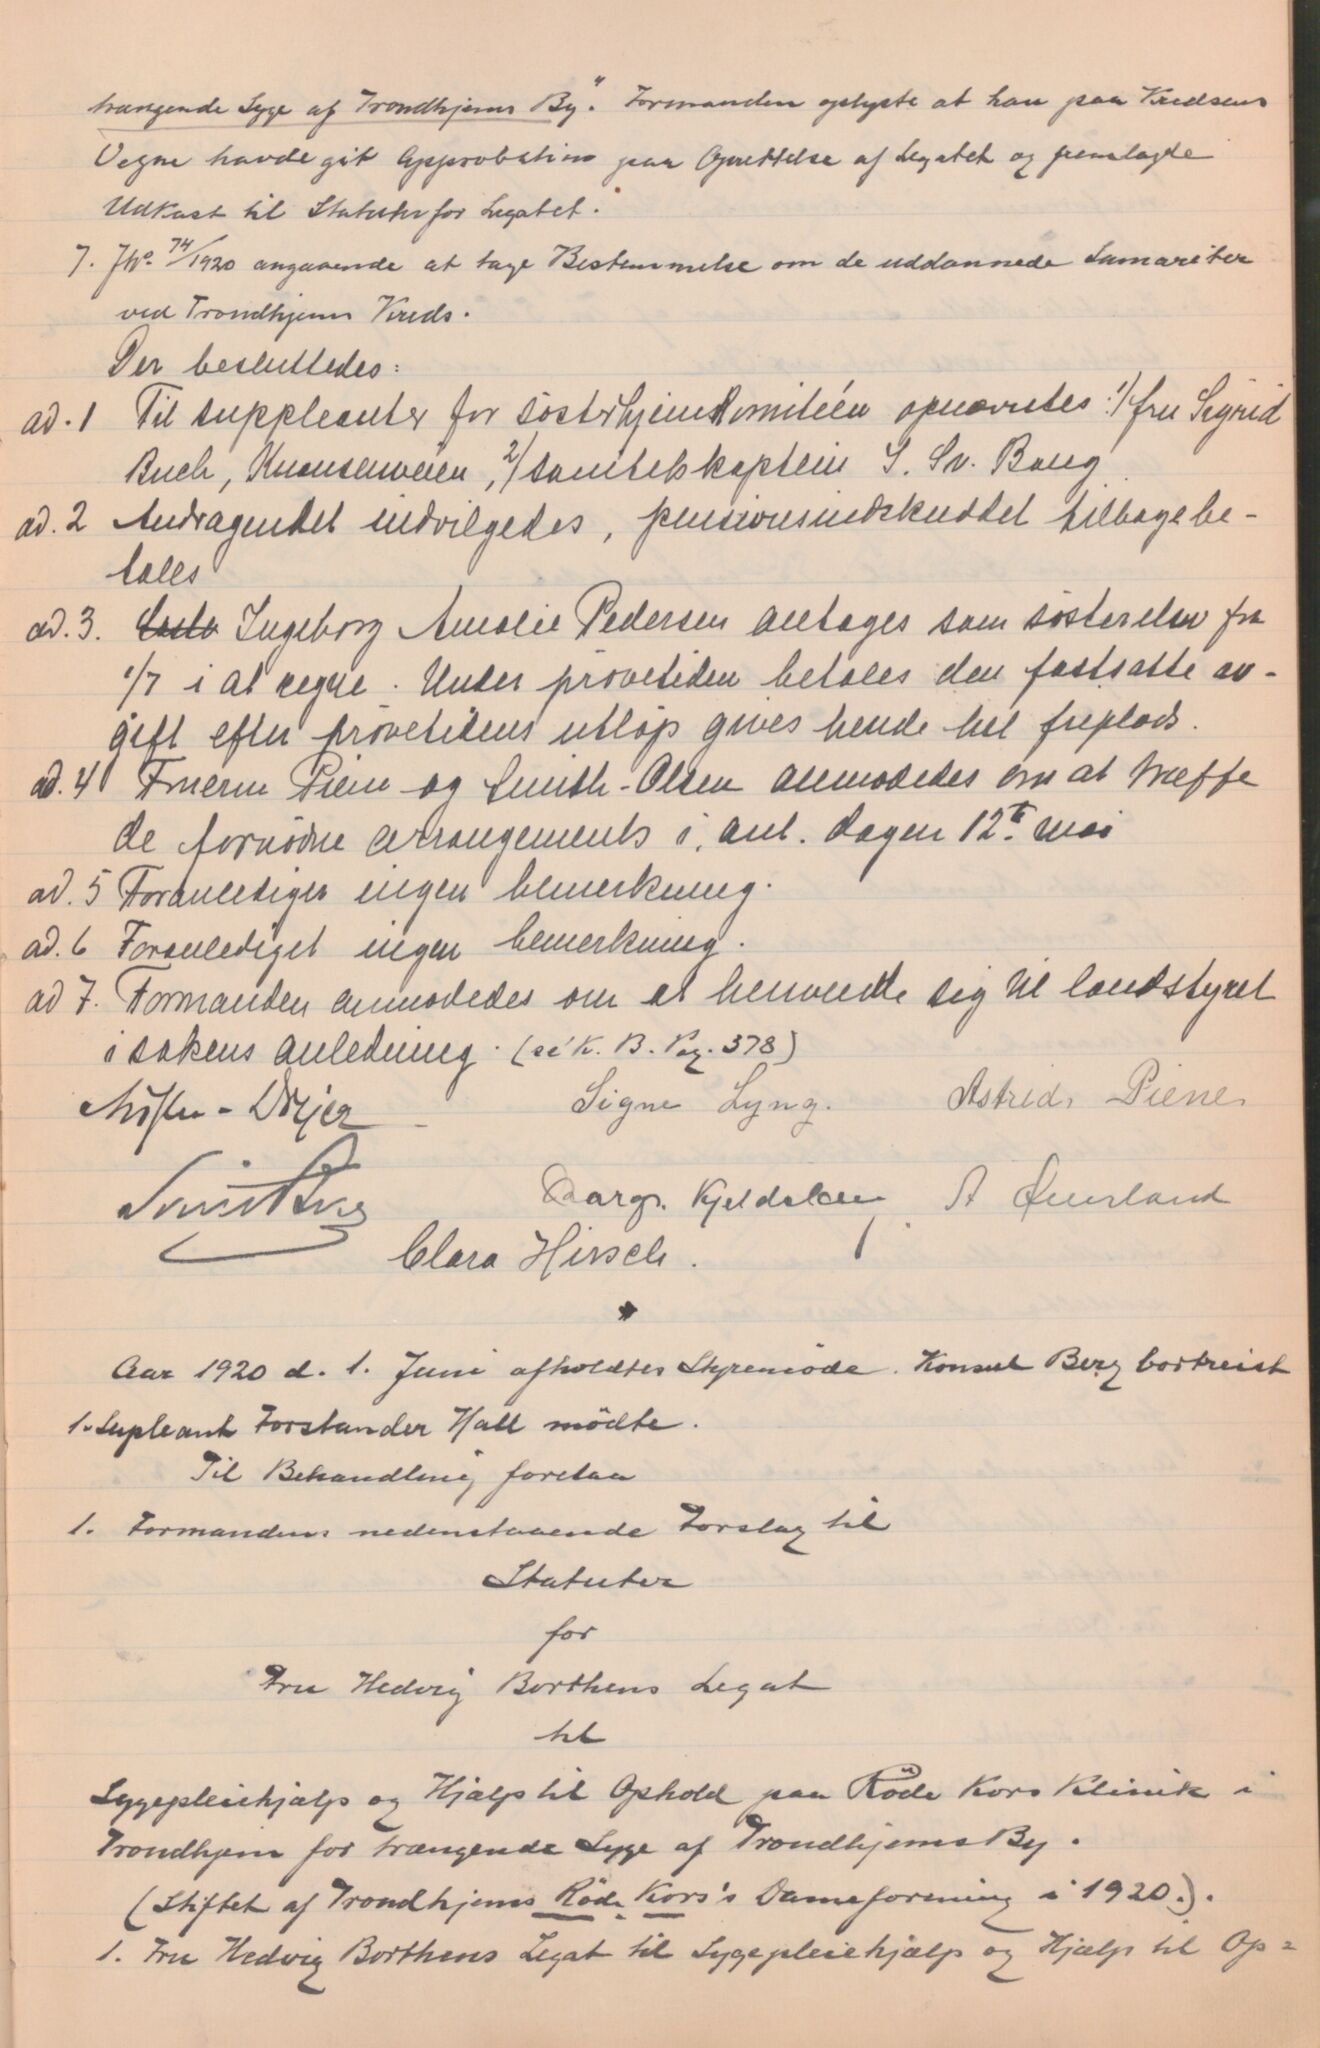 trængende Syge af Trondhjems By". Formanden oplyste at han paa Kredsens
Vegne havde git Approbation paa Oprettelse af Legatet og fremlagde
Udkast til Statuter for Legatet.
7. JNo. 74/1920 angaaende at tage Bestemmelse om de uddannede Samariter
ved Trondhjems Kreds.
Der besluttedes:
ad. 1 Til suppleanter for søsterhjemskomitéen opnævntes: 1/ fru Sigrid
Buch, Knausenveien, 2/ sanitetskaptein S. Sv. Baug
ad. 2 Andragendet indvilgedes, pensionsindskuddet tilbagebe-
tales
ad. 3. Ingeborg Amalie Pedersen antages som søsterelev fra
1/7 i at regne. Under prøvetiden betales den fastsatte av-
gift efter prøvetidens utløp gives hende hel friplads.
ad. 4 Fruerne Piene og Smith-Olsen anmodedes om at træffe
de fornødne arrangements i. anl. dagen 12te mai
ad. 5 Foranlediget ingen bemerkning.
ad. 6 Foranlediget ingen bemerkning.
ad 7. Formanden anmodedes om at henvende sig til landstyret
i sakens anledning. (se K. B. Pag. 378)
Signe Lyng. Astrid Piene
Kjeldsen A Øverland
Clara Hirsch.
Aar 1920 d. 1. Juni afholdtes Styremøde. Konsul Berg bortreist
1. Supleant Forstander Hall mödte.
Til Behandling foretaa
1. Formandens nedenstaaende Forslag til
Statuter
for
Fru Hedvig Borthens Legat
til
Sygepleiehjælp og Hjælp til Ophold paa Röde Kors Klinik i
Trondhjem for trængende Syge af Trondhjems By.
(Stiftet af Trondhjems Röde Kors's Dameforening i 1920.).
1. Fru Hedvig Borthens Legat til Sygepleiehjælp og Hjælp til Op=